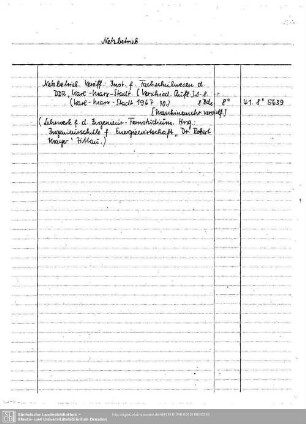 Netzbetrieb
Netzbetrieb. Veröff.: Inst. f. Fachschulwesen d.
DDR, Karl-Marx-Stadt. (Verschied. Aufl.) 1-8.
(Karl-Marx-Stadt 1967 8 Bde 8° 41. 8° 5639
[Maschinenschr. vervielf.]
(Lehrwerk f. d. Ingenieur-Fernstudium. Hrsg.:
Ingenieurschule f. Energiewirtschaft „Dr. Robert
Mayer" Zittau.)
Sächsische Landesbibliothek -
Staats- und Universitätsbibliothek Dresden